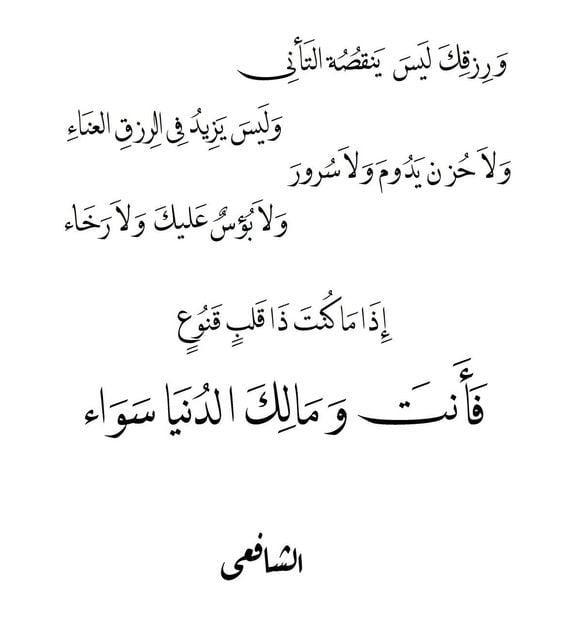 وَرِزقِكَ لَيسَ يَنقصُهُ التَأَنِى
وَلَيسَ يَزِيدُ فِى الرِزقِ العنَاءِ
وَلاَ حُزن يَدُومَ وَلاَ سُرورَ
وَلاَ بُؤسٌ عَليكَ وَلاَ رَخَاء
إِذَا مَا كُنتَ ذَا قَلبٍ قَنُوعٍ
فَأَنتَ وَمَالِكَ الدُنيَا سَوَاء
الشافعى